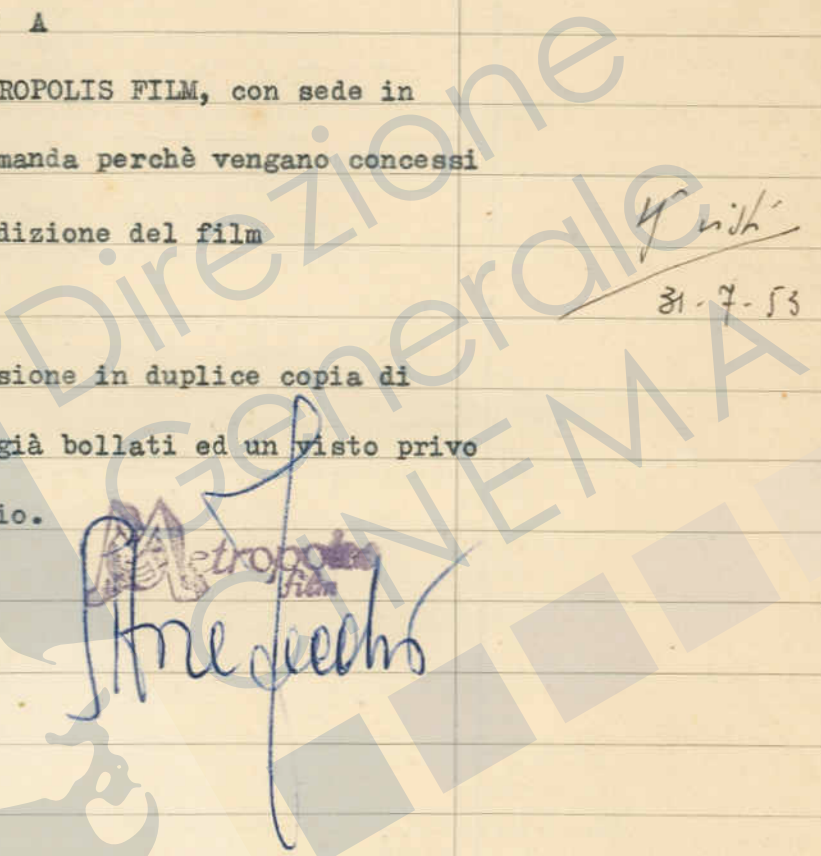 A
ROPOLIS FILM, con sede in
manda perchè vengano concessi
dizione del film
visti
31-7-53
sione in duplice copia di
già bollati ed un visto privo
io.
Metropolis
film
Direzione
Generale
CINEMA